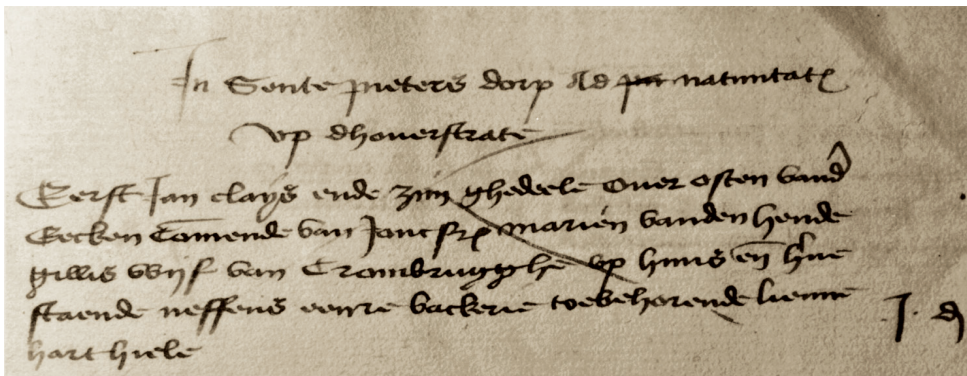 In Sente pieters dorp Ad natiuitatē
vp dhouerstrate
Eerst Jan clays ende zijn ghedeele ouer osten vand
Eecken Comende van Joncfrͦ mariën vanden hende
gillis wijf van Crombrugghe vp huus eñ h've
staende neffens eenre backerie toebehorende lieuine
hart hiele
.J. d